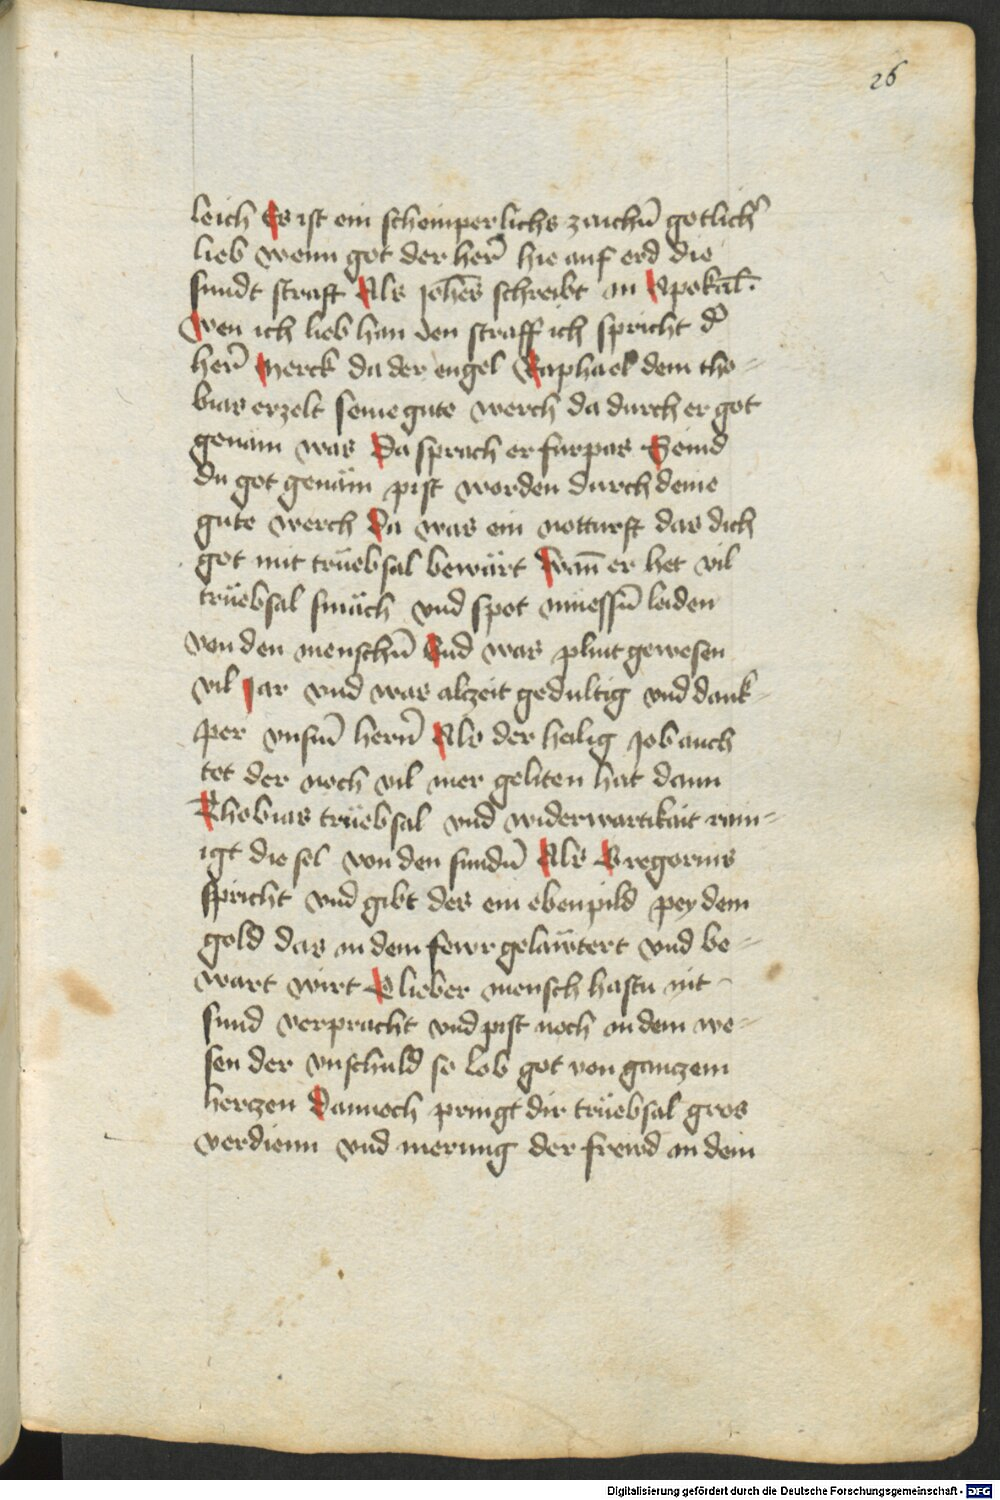 26
leich Es ist ein scheinperlichs zaichn̄ gotlich̕
lieb wenn got der her̄ hie auf erd die
sundt straft Als joh̄es schreibt in Apokal̄.
Wen ich lieb han den straff ich spricht d̕
her̄ Merck da der engel Raphael dem tho-
bias erzelt seine gute werch da durch er got
genäm was Da sprach er furpas Seind
du got genäm pist worden durch deine
gute werch Da was ein notturft das dich
got mit trüebsal bewärt Wan̄ er het vil
trüebsal smäch vnd spot müessn̄ leiden
von den menschn̄ Vnd was plint gewesen
vil Jar vnd was alczeit gedultig vnd dank-
per vnsm̄ hern̄ Als der heilig Job auch
tet der noch vil mer geliten hat dann
Thobias trüebsal vnd widerwartikait rain-
igt die sel von den sundn̄ Als Gregorius
spricht vnd gibt des ein ebenpild pey dem
gold das in dem fewr geläwtert vnd be-
wart wirt O lieber mensch hastu nit
sund verpracht vnd pist noch in dem we-
sen der vnschuld so lob got von ganczem
herczen Dannoch pringt dir trüebsal gros
verdienn vnd merung der frewd in dem
Digitalisierung gefördert durch die Deutsche Forschungsgemeinschaft - DFG